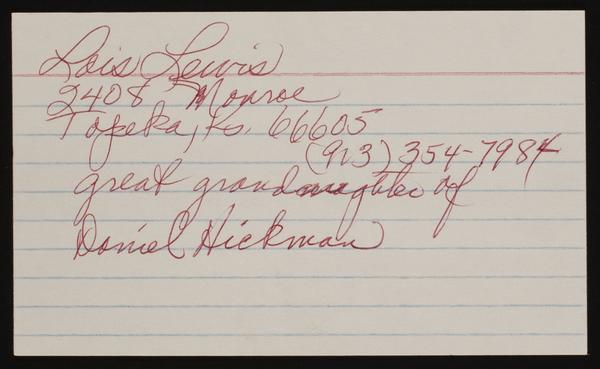 Lois Lewis
2408 Monroe
Topeka, Ks. 66605
(913) 354-7984
great grandaughter of
Daniel Hickman